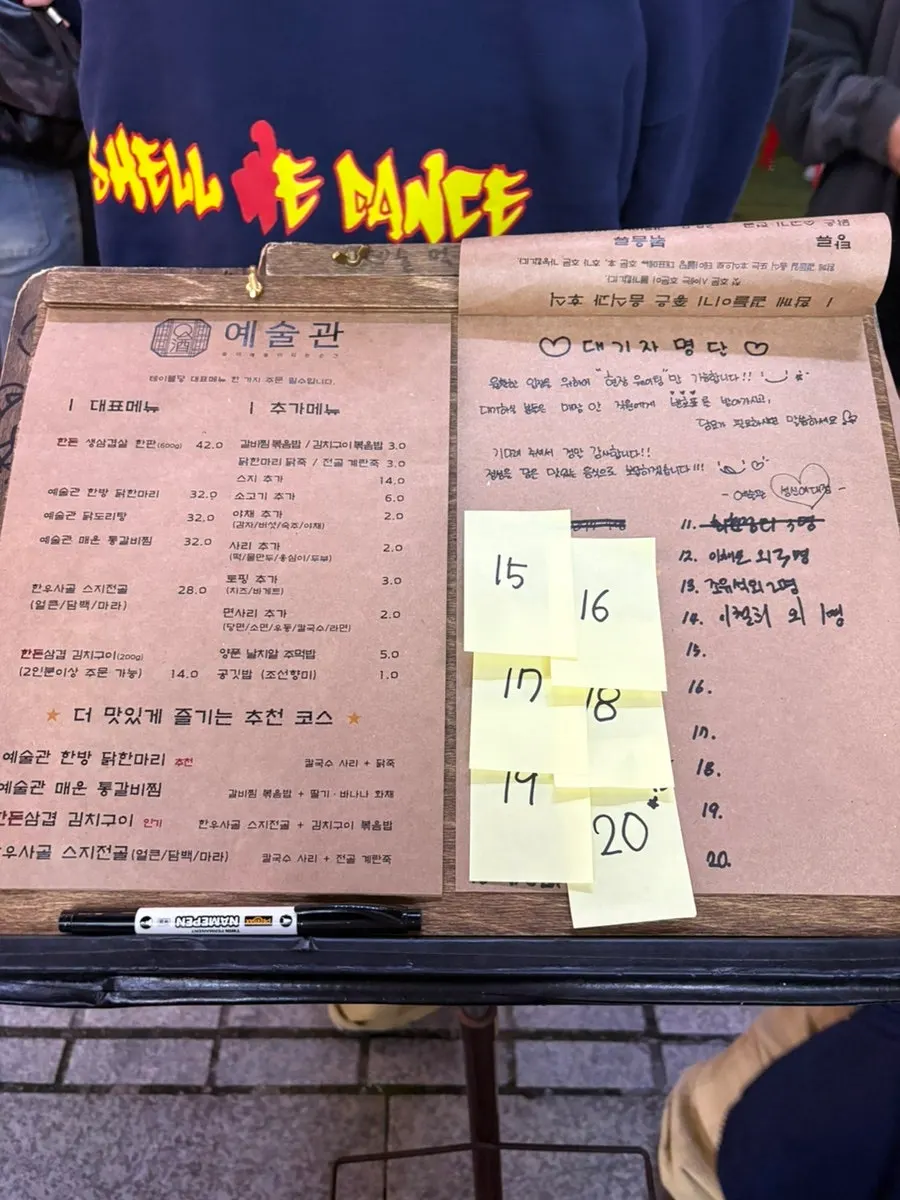 SHELL WE DANCE
예술관
테이블당 대표메뉴 한 가지 주문 필수입니다.
| 대표메뉴
한돈 생삼겹살 한판(600g) 42.0
예술관 한방 닭한마리 32.0
예술관 닭도리탕 32.0
예술관 매운 통갈비찜 32.0
한우사골 스지전골 28.0
(얼큰/담백/마라)
한돈삼겹 김치구이(200g)
(2인분이상 주문 가능) 14.0
| 추가메뉴
갈비찜 볶음밥 / 김치구이볶음밥 3.0
닭한마리 닭죽 / 전골 계란죽 3.0
스지 추가 14.0
소고기 추가 6.0
야채 추가 2.0
(감자/버섯/숙주/야채)
사리 추가 2.0
(떡/물만두/옹심이/두부)
토핑 추가 3.0
(치즈/바게트)
면사리 추가 2.0
(당면/소면/우동/칼국수/라면)
양푼 날치알 주먹밥 5.0
공깃밥 (조선향미) 1.0
★ 더 맛있게 즐기는 추천 코스 ★
예술관 한방 닭한마리 추천 칼국수 사리 + 닭죽
예술관 매운 통갈비찜 갈비찜 볶음밥 + 딸기·바나나 화채
한돈삼겹 김치구이 인기 한우사골 스지전골 + 김치구이 볶음밥
한우사골 스지전골(얼큰/담백/마라) 칼국수 사리 + 전골 계란죽
| 함께 곁들이기 좋은 음식과 후식
♡ 대기자 명단 ♡
원활한 입장을 위하여 "현장 웨이팅"만 가능합니다!!
대기하실 분들은 매장 안 직원에게 번호표를 받아가시고,
담요가 필요하시면 말씀하세요
기다려 주셔서 정말 감사합니다!!
정성을 담은 맛있는 음식으로 보답하겠습니다!!!
- 예술관 성신여대점 -
15
16
17
18
19
20
11.
12. 이채린 외 3명
13. 조유석 외 2명
14. 이철희 외 1명
15.
16.
17.
18.
19.
20.
NAMEPEN